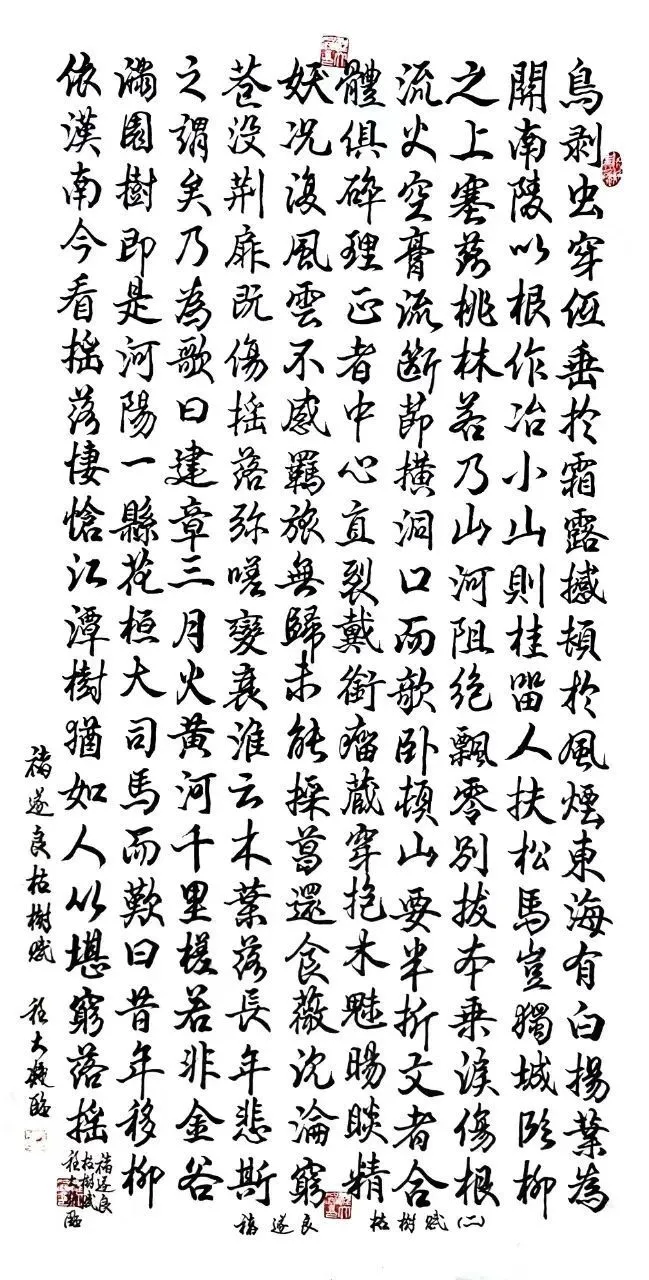 鳥剥虫穿低垂於霜露撼頓於風煙東海有白揚葉為
開南陵以根作冶小山則桂留人扶松馬豈獨城臨柳
之上塞落桃林若乃山河阻絶飄零別拔本乗淚傷根
流火空膏流斷節横洞口而欹卧頓山要半折文者合
體俱碎理正者中心直裂戴銜瘤藏穿抱木魅睗睒精
妖况復風雲不感羈旅無歸未能採葛還食薇沉淪窮
巷没荆扉既傷揺落弥嗟變衰淮云木葉落長年悲斯
之謂矣乃為歌曰建章三月火黄河千里槎若非金谷
滿園樹即是河陽一縣花桓大司馬而歎曰昔年移柳
依漢南今看揺落悽愴江潭樹猶如人以堪窮落揺
褚遂良枯樹賦 程大臨
褚遂良
枯樹賦
程大臨
褚遂良 枯樹賦(二)